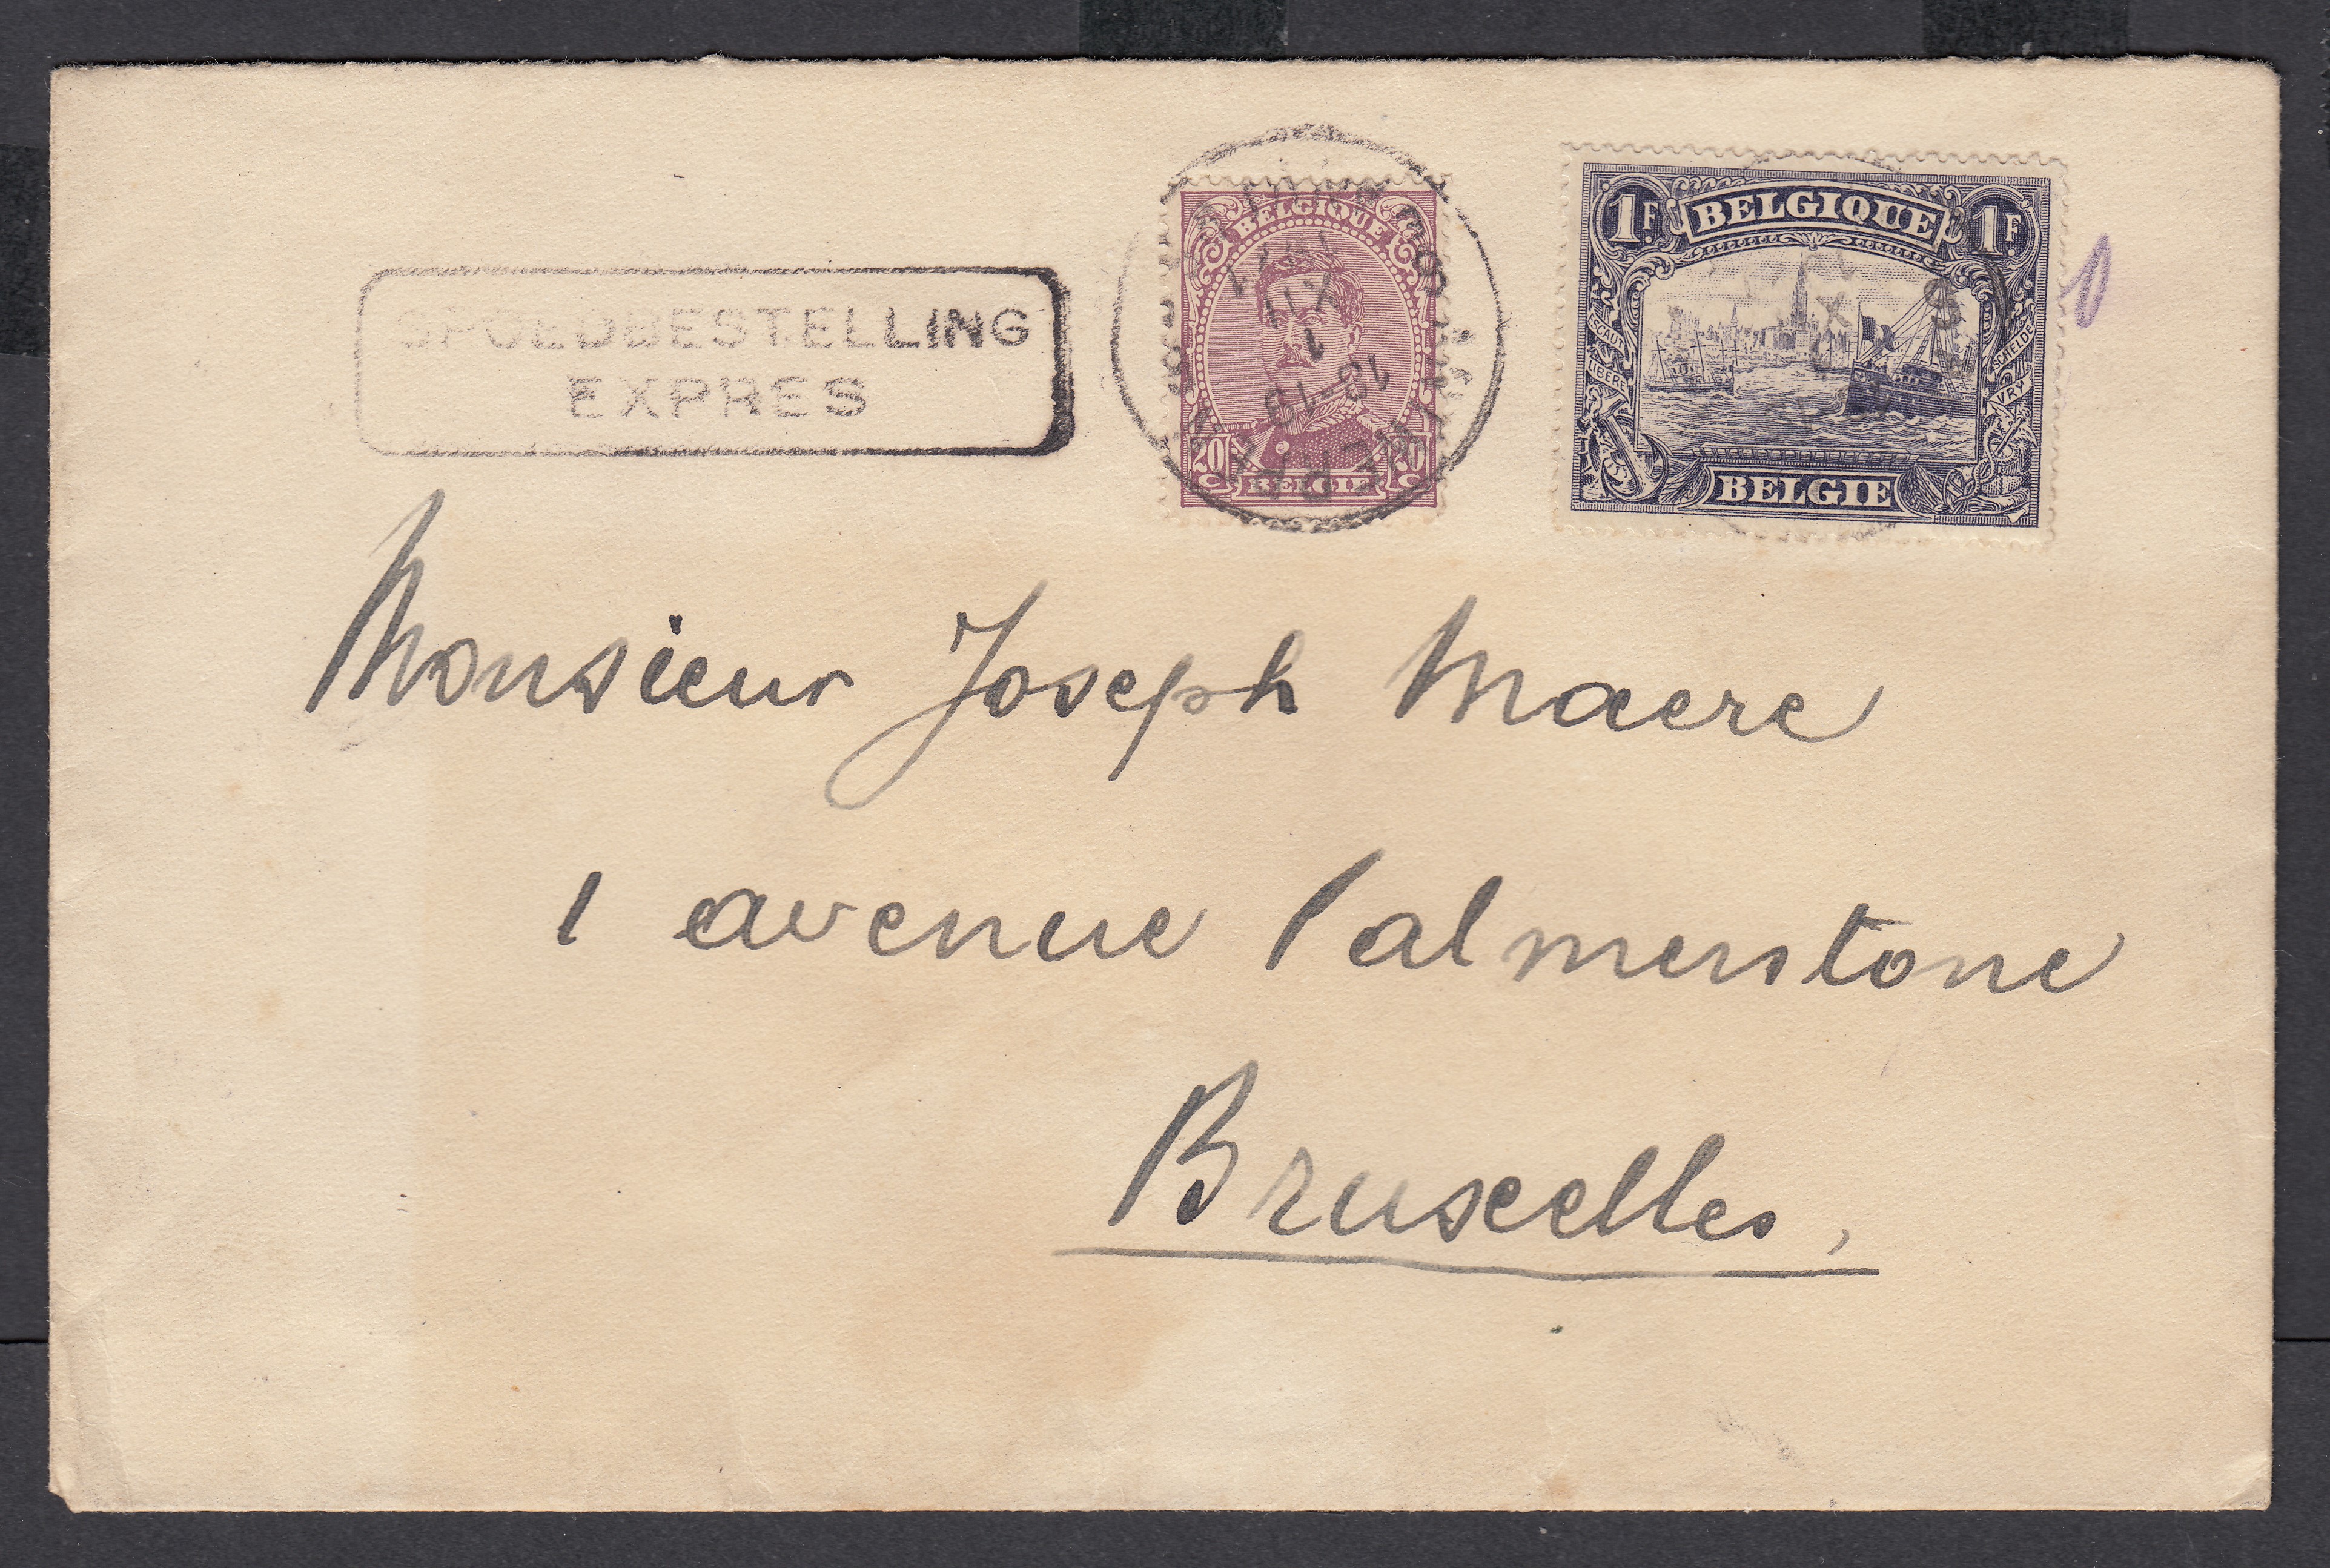 SPOEDBESTELLING
EXPRES
BELGIQUE
20 C 20 C
BELGIË
1F BELGIQUE 1F
ESCAUT LIBÉRÉ
SCHELDE VRY
BELGIE
ANTWERPEN
1 XII
18-19
Monsieur Joseph Maere
1 avenue Palmerstone
Bruxelles,